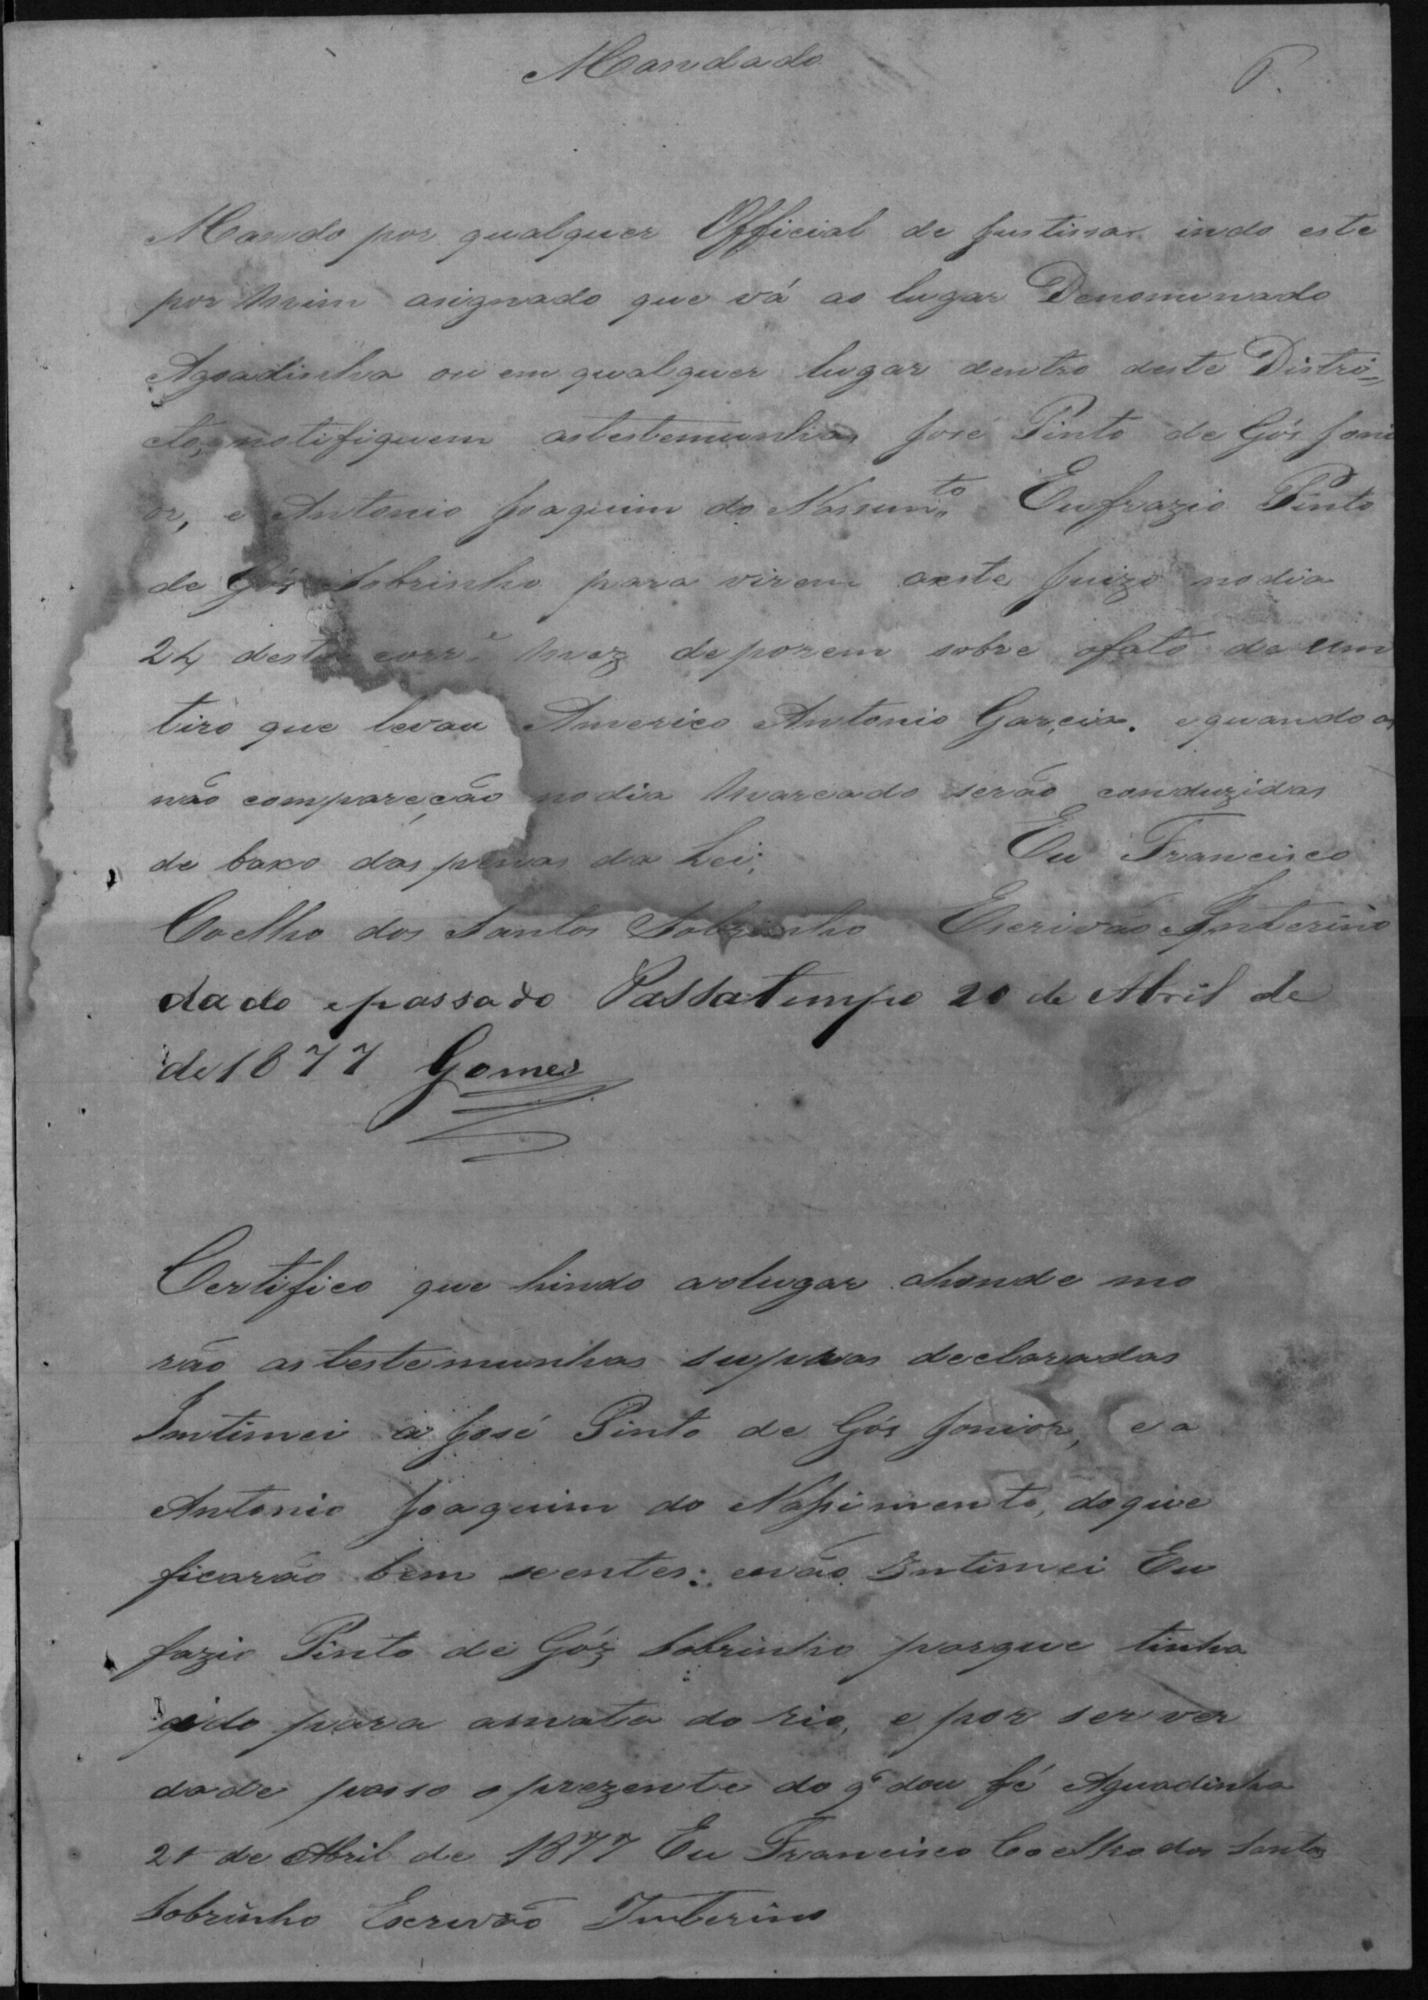 Mandado
6.
Mando por qualquer Official de justissa indo este
por mim asignado que vá ao lugar Denominado
Agoadinha ou em qualquer lugar dentro deste Distri=
cto, notifiquem astestemunhas José Pinto de Gós Joni
or, e Antonio Joaquim do Nassim.to Eufrazio Pinto
de Gós Sobrinho para virem a este juizo nodia
24 deste corr.e mez deporem sobre ofato de um
tiro que levou Americo Antonio Garçia. equando
não compareção nodia marcado serão conduzidas
de baxo das penas da Lei; Eu Francisco
Coelho dos Santos Sobrinho Escrivão Interino
dado epassado Passatempo 20 de Abril de
de 1877 Gomes
Certifico que hindo aolugar ahonde mo
rão astestemunhas supras declaradas
Intimei a José Pinto de Gós Jonior, e a
Antonio Joaquim do Nassimento, doque
ficarão bem scentes: enão Intimei Eu
fazio Pinto de Góz Sobrinho porque tinha
ido para amata do rio, e por ser ver
dade passo oprezente do q.e dou fé Aguadinha
21 de Abril de 1877 Eu Francisco Coelho dos Santos
Sobrinho Escrivão Interino